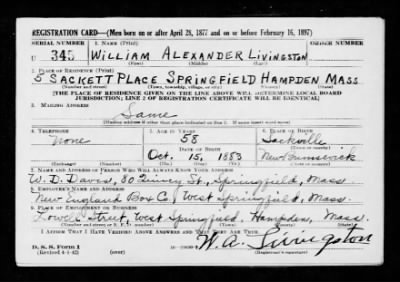 REGISTRATION CARD—(Men born on or after April 28, 1877 and on or before February 16, 1897)
SERIAL NUMBER 1. NAME (Print) ORDER NUMBER
U 345 WILLIAM ALEXANDER LIVINGSTON
(First) (Middle) (Last)
2. PLACE OF RESIDENCE (Print)
5 SACKETT PLACE SPRINGFIELD HAMPDEN MASS
(Number and street) (Town, township, village, or city) (County) (State)
[THE PLACE OF RESIDENCE GIVEN ON THE LINE ABOVE WILL DETERMINE LOCAL BOARD
JURISDICTION; LINE 2 OF REGISTRATION CERTIFICATE WILL BE IDENTICAL]
3. MAILING ADDRESS
Same
(Mailing address if other than place indicated on line 2. If same insert word same)
4. TELEPHONE 5. AGE IN YEARS 6. PLACE OF BIRTH
None 58 Sackville
DATE OF BIRTH (Town or county)
Oct. 15, 1883 New Brunswick
(Exchange) (Number) (Mo.) (Day) (Yr.) (State or country)
7. NAME AND ADDRESS OF PERSON WHO WILL ALWAYS KNOW YOUR ADDRESS
W. D. Davis, 80 Quincy St., Springfield, Mass.
8. EMPLOYER'S NAME AND ADDRESS
New England Box Co., West Springfield, Mass.
9. PLACE OF EMPLOYMENT OR BUSINESS
Lowell Street, West Springfield, Hampden, Mass.
(Number and street or R. F. D. number) (Town) (County) (State)
I AFFIRM THAT I HAVE VERIFIED ABOVE ANSWERS AND THAT THEY ARE TRUE.
D. S. S. Form 1
(Revised 4-1-42) (over) W. A. Livingston
(Registrant's signature)